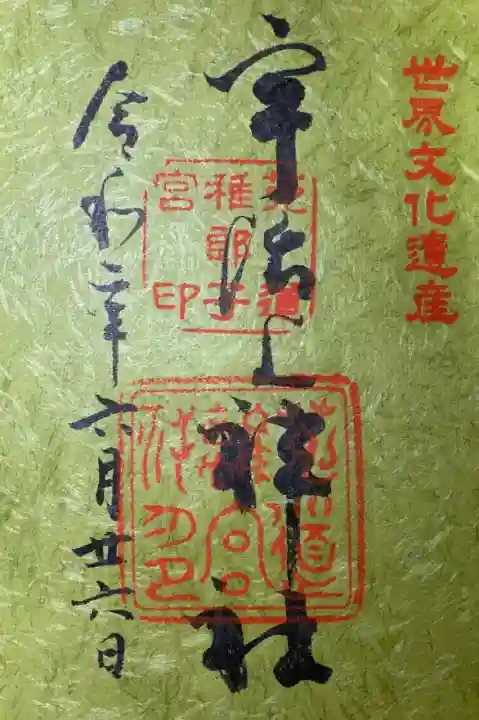 世界文化遺産
宇治上神社
菟道
稚郎子
宮印
令和二年六月廿六日